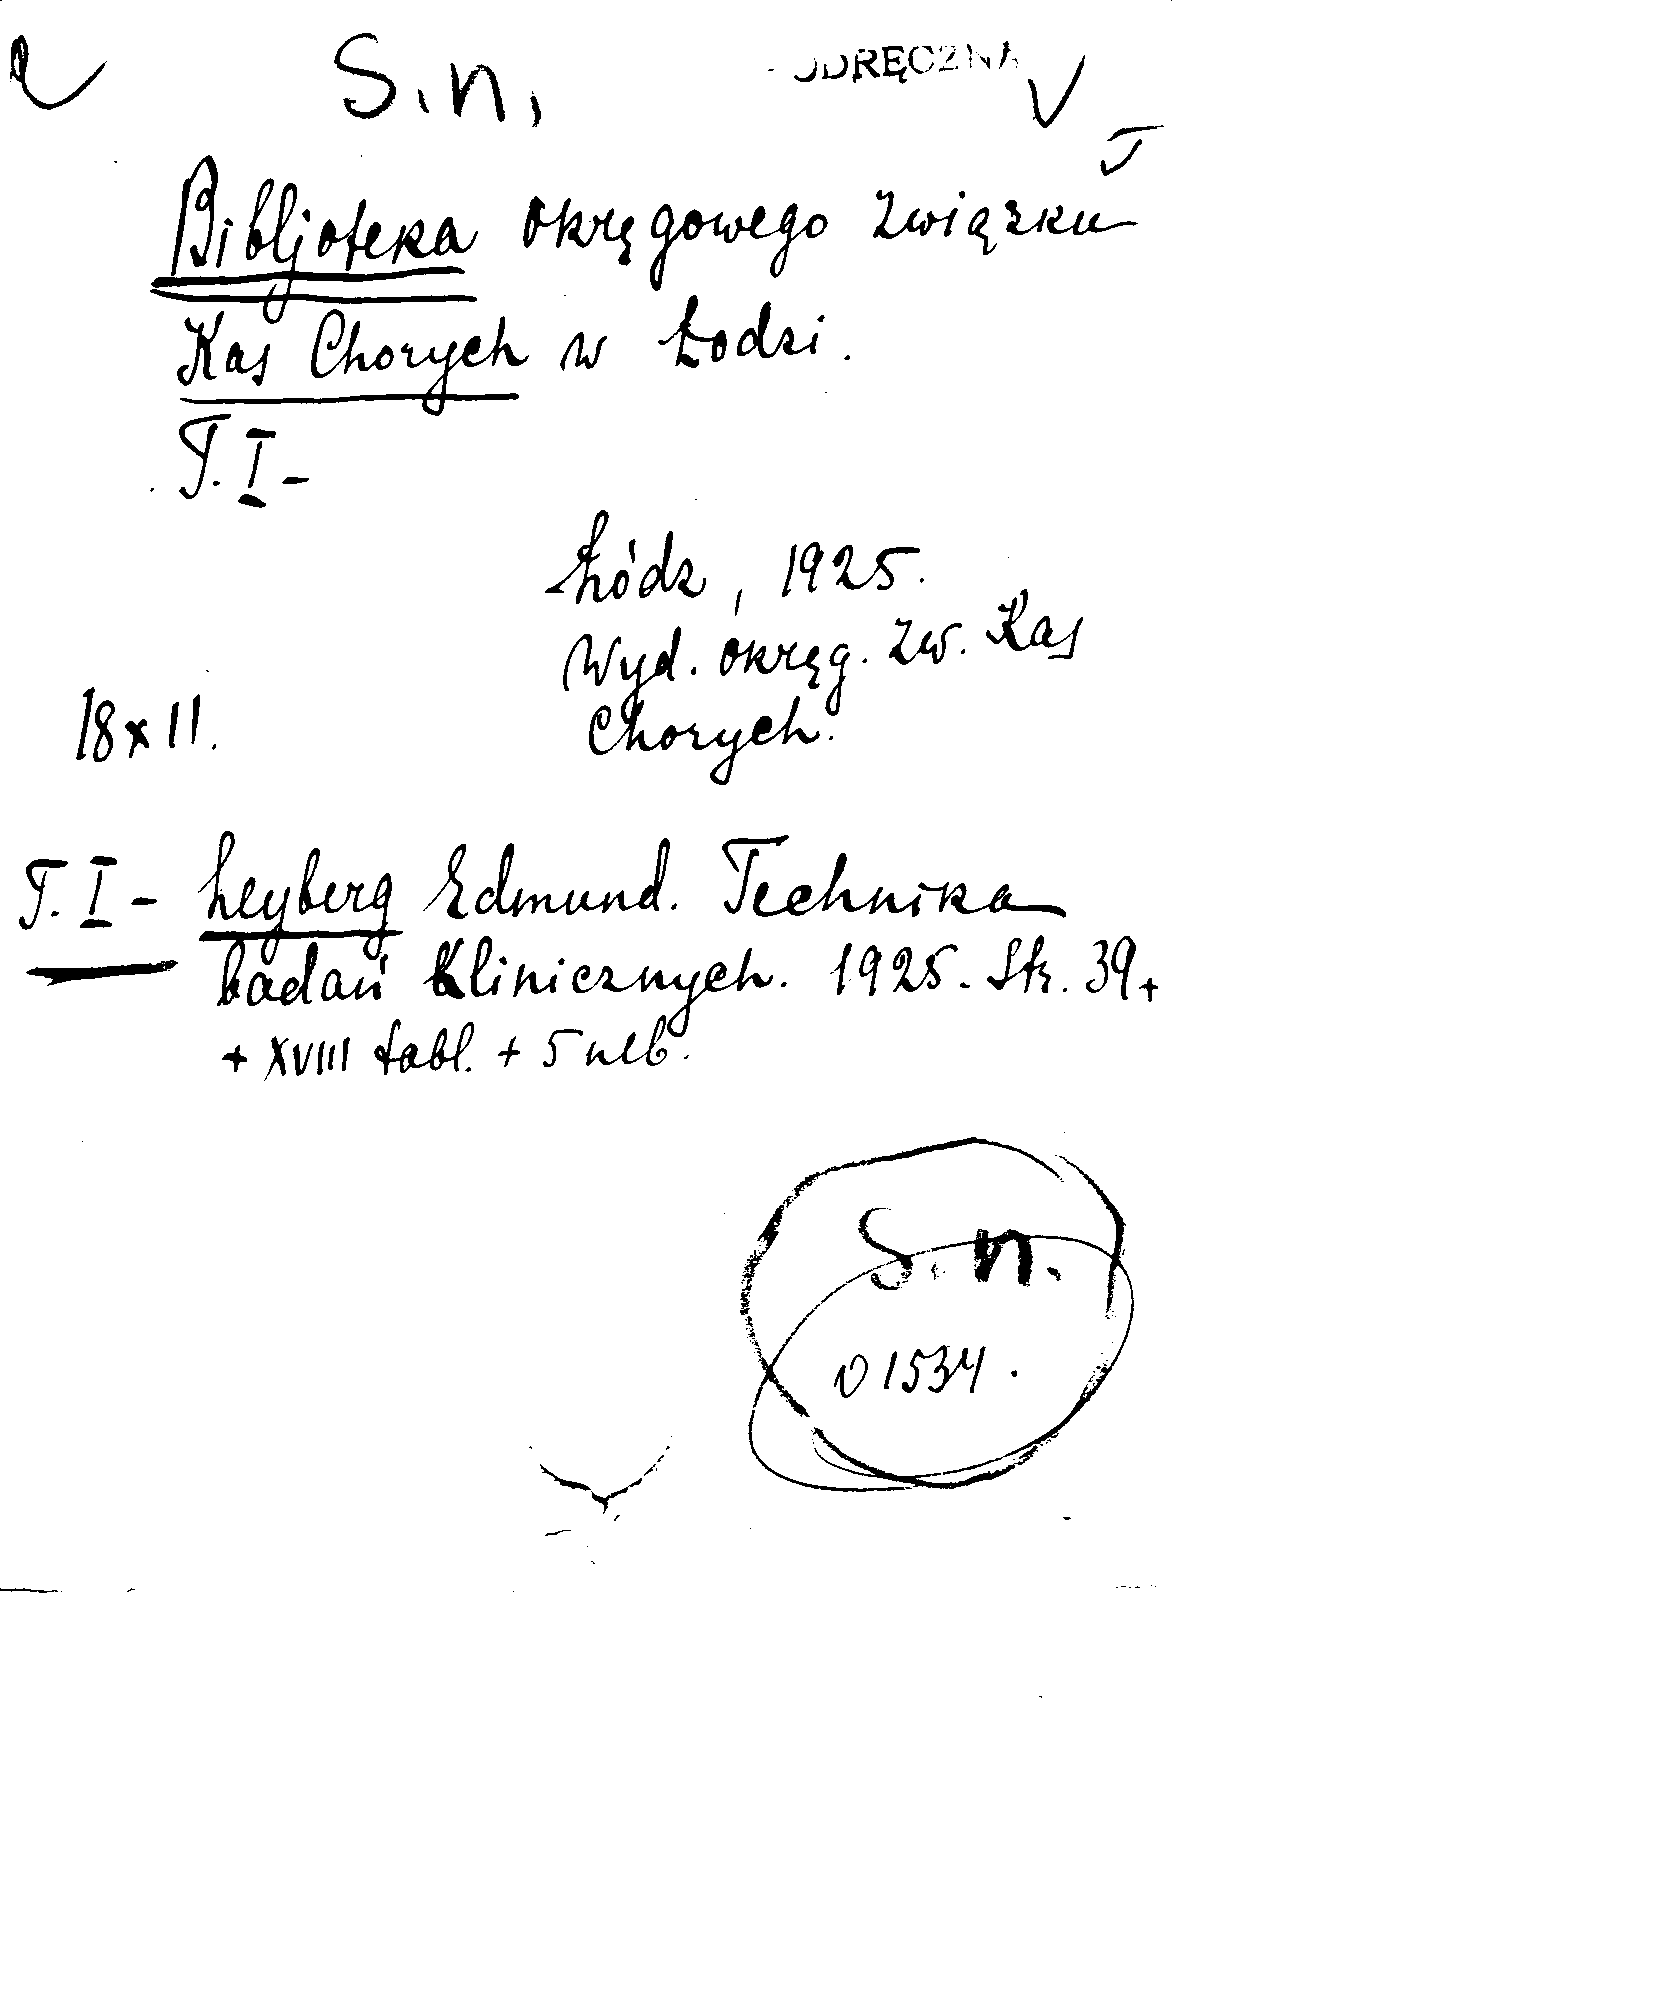 S.n.
Bibljoteka okręgowego związku
Kas Chorych w Łodzi.
T. I -
Łódz, 1925.
Wyd. okręg. zw. Kas
18 x 11.
Chorych.
T. I - Leyberg Edmund. Technika
badań klinicznych. 1925. Str. 39 +
+ XVIII tabl. + 5 nlb.
S. n.
01534.